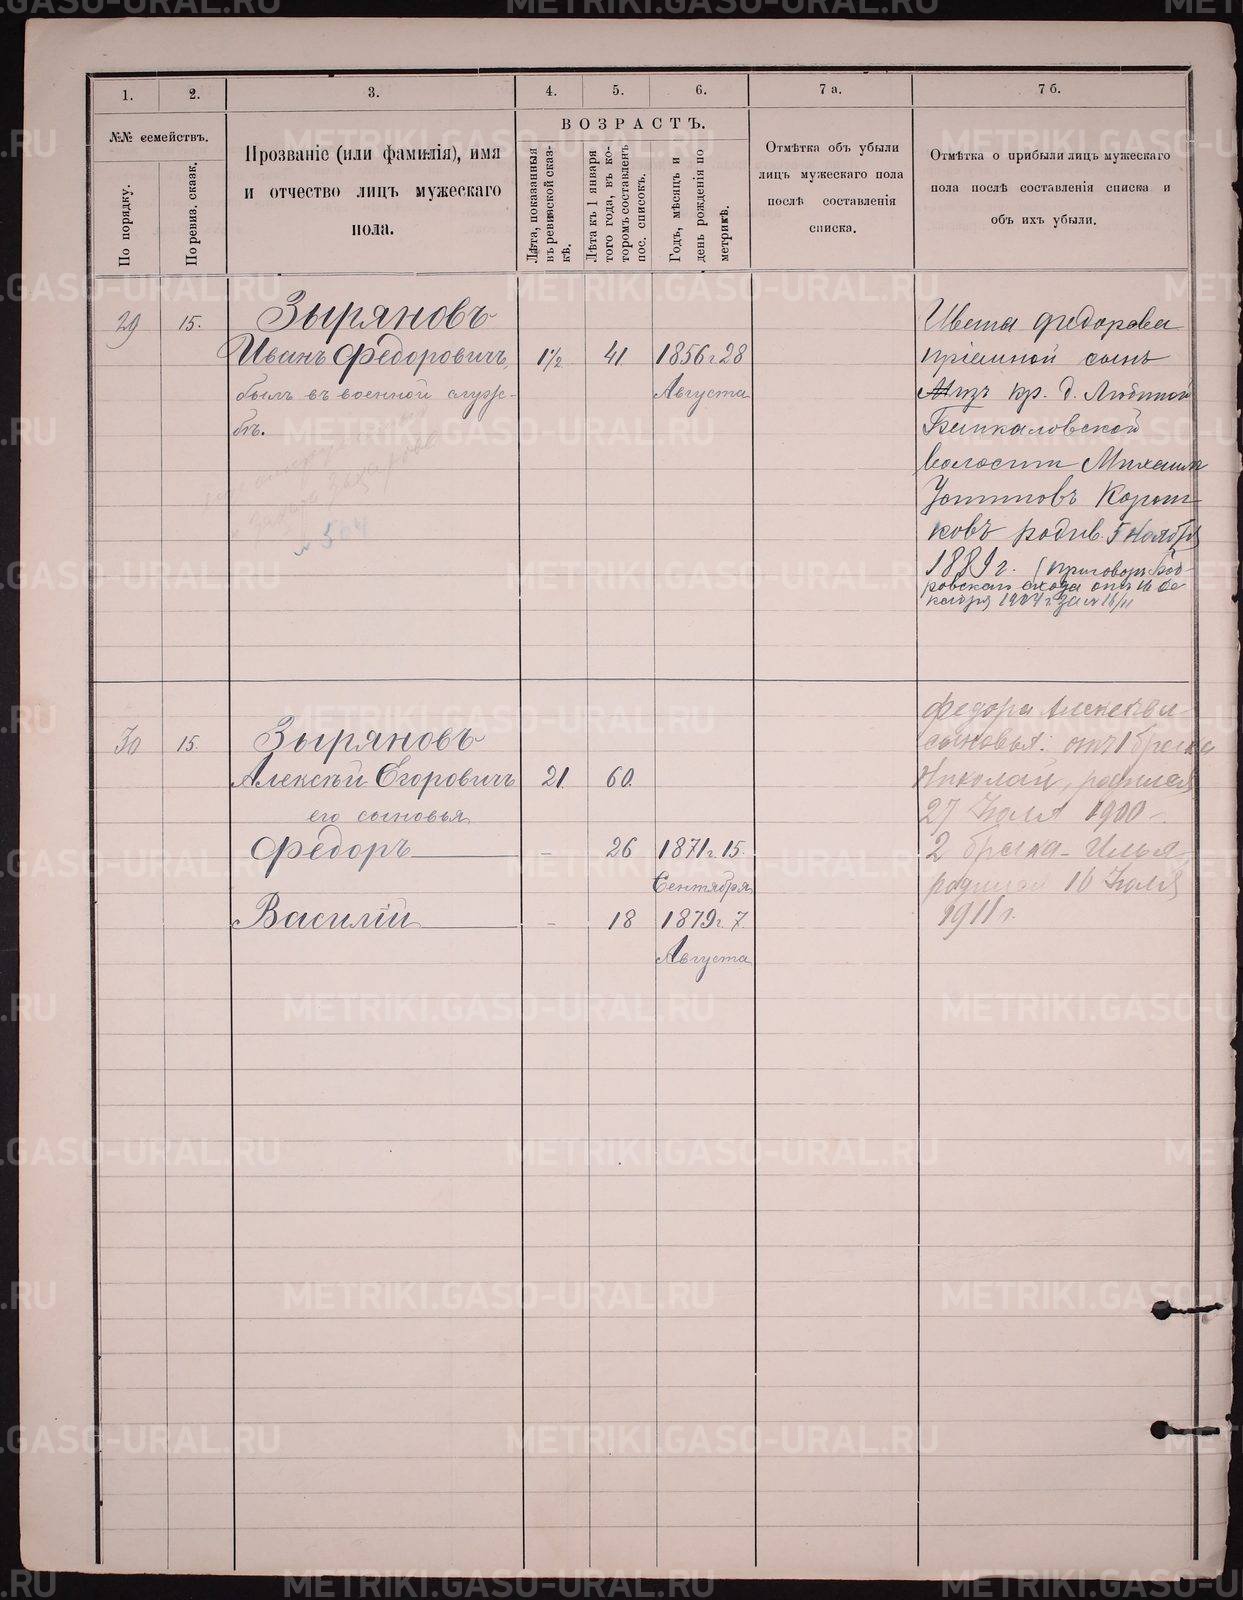 1.
2.
3.
4.
5.
6.
7 а.
7 б.
№№ семействъ.
По порядку.
По ревиз. сказк.
Прозваніе (или фамилія), имя
и отчество лицъ мужескаго
пола.
ВОЗРАСТЪ.
Лѣта, показанныя
въ ревизской сказ-
кѣ.
Лѣта къ 1 января
того года, въ ко-
торомъ составленъ
пос. списокъ.
Годъ, мѣсяцъ и
день рожденія по
метрикѣ.
Отмѣтка объ убыли
лицъ мужескаго пола
послѣ составленія
списка.
Отмѣтка о прибыли лицъ мужескаго
пола послѣ составленія списка и
объ ихъ убыли.
29 15. Зыряновъ
Иванъ Федоровичъ, 1½ 41 1856 г. 28
Августа
былъ въ военной служ-
бѣ.
№ 504
Ивана Федорова
пріемной сынъ
изъ кр. д.
волости Михаилъ
ковъ родив. 5 Ноября
1889 г. (приговоръ
схода отъ
30 15. Зыряновъ
Алексѣй Егоровичъ 21 60.
его сыновья
Федоръ - 26 1871 г. 15.
Сентября
Василій - 18 1879 г. 7.
Августа
Федора Алексѣева
сыновья: отъ 1 брака
Николай, родился
27 Іюля 1900
2 брака - Илья
родился 16 Іюля
1911 г.
METRIKI.GASO-URAL.RU